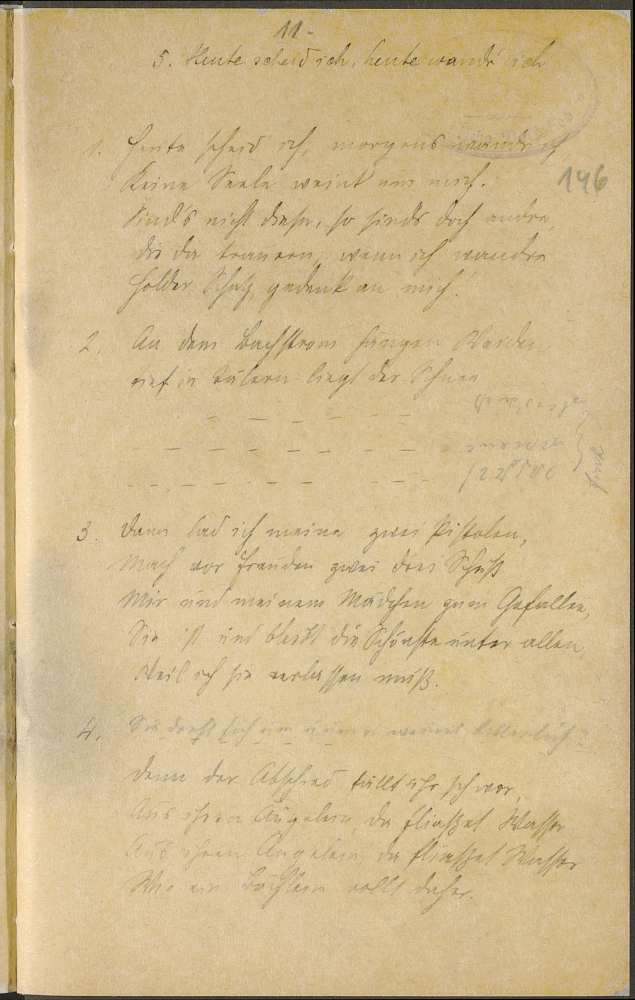 11.
5. Heute scheid ich, heute wandr' ich
1. Heute scheid ich, morgens wandr ich
Keine Seele weint um mich.
146
Sind's nicht diese, so sinds doch andre,
die da trauern, wenn ich wandre
holder Schatz, gedenk an mich!
2. An dem Bachstrom hängen Weiden
tief in Tälern liegt der Schnee
3. Dann lad ich meine zwei Pistolen,
Mach vor Freuden zwei drei Schuß
Mir und meinem Mädchen zum Gefallen,
Sie ist und bleibt die Schönste unter allen,
Weil ich sie verlassen muß.
4. Sie dreht sich um und weinet bitterlich
denn der Abschied fällt ihr schwer,
Aus ihren Äugelein, da fließet Wasser
Aus ihren Äugelein, da fließet Wasser
Wie ein Bächlein rollt daher.